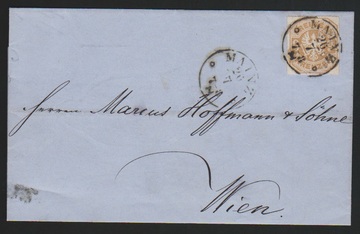 MAINZ
MAINZ
Herren Marcus Hoffmann & Söhne
Wien.